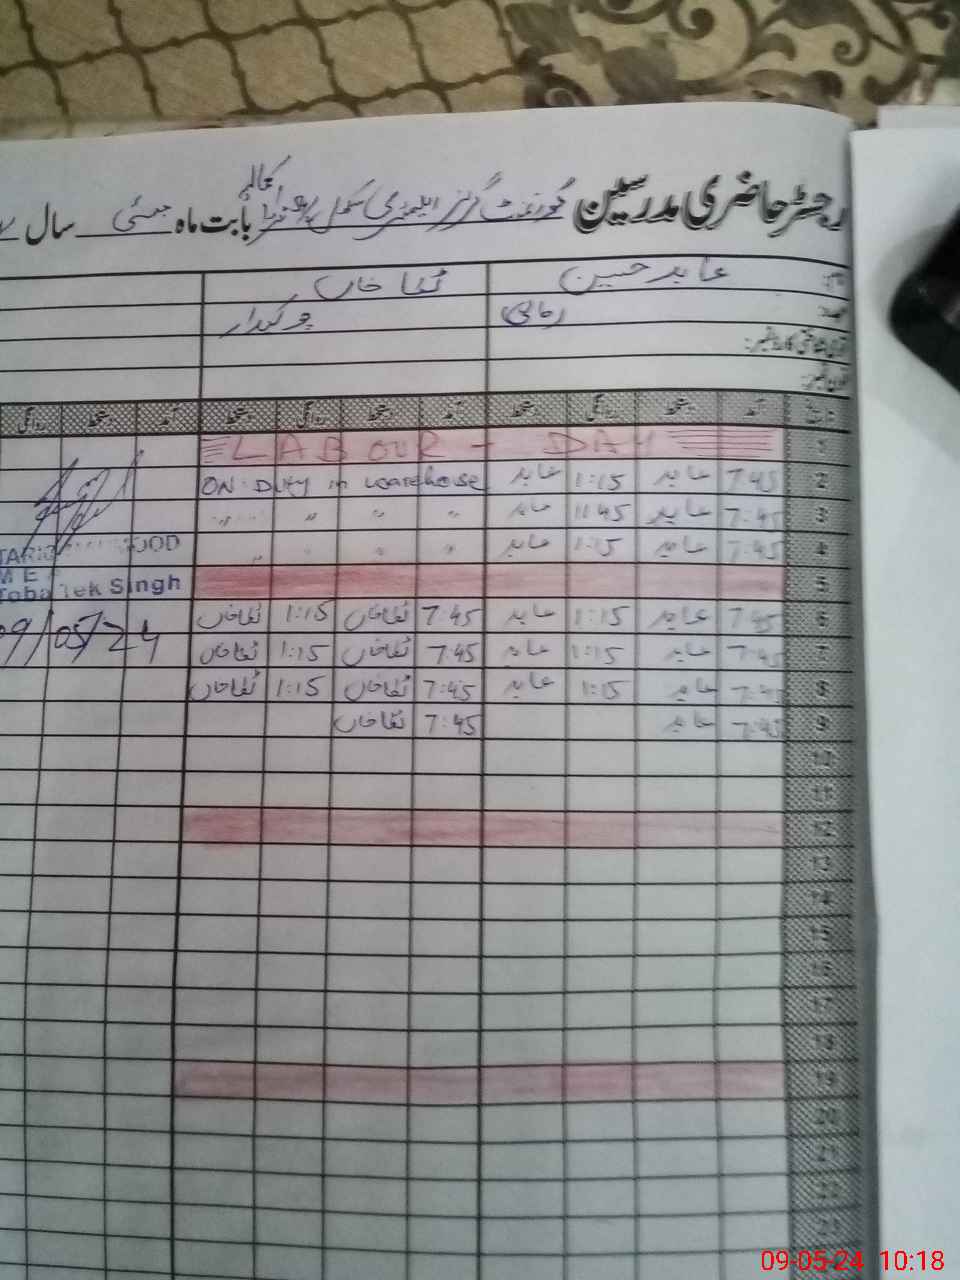 رجسٹر حاضری مدرسین گورنمنٹ گرلز ایلیمنٹری سکول بابت ماہ مئی سال
نام: عابد حسین
عہدہ: مالی چوکیدار
قومی شناختی کارڈ نمبر:
فون نمبر:
تاریخ آمد دستخط روانگی دستخط آمد دستخط روانگی دستخط آمد دستخط روانگی
1 LABOUR - DAY
2 7:45 عابد 1:15 عابد ON Duty in warehouse
3 7:45 عابد 11:45 عابد " " " "
4 7:45 عابد 1:15 عابد " " "
TARIQ OOD
5
M E
Toba Tek Singh
6 7:45 عابد 1:15 عابد 7:45 1:15
09/05/24
7 7:45 عابد 1:15 عابد 7:45 1:15
8 7:45 عابد 1:15 عابد 7:45 1:15
9 7:45 عابد 7:45
10
11
12
13
14
15
16
17
18
19
20
21
22
23
09-05-24 10:18